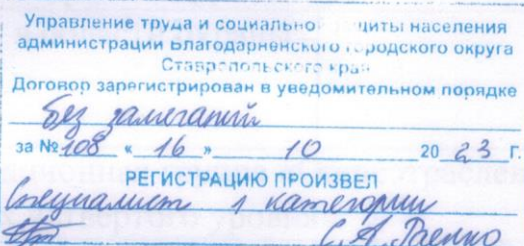 Управление труда и социальной защиты населения
администрации Благодарненского городского округа
Ставропольского края
Договор зарегистрирован в уведомительном порядке
без замечаний
за № 108 « 16 » 10 20 23 г.
РЕГИСТРАЦИЮ ПРОИЗВЕЛ
Специалист 1 категории
С.А.